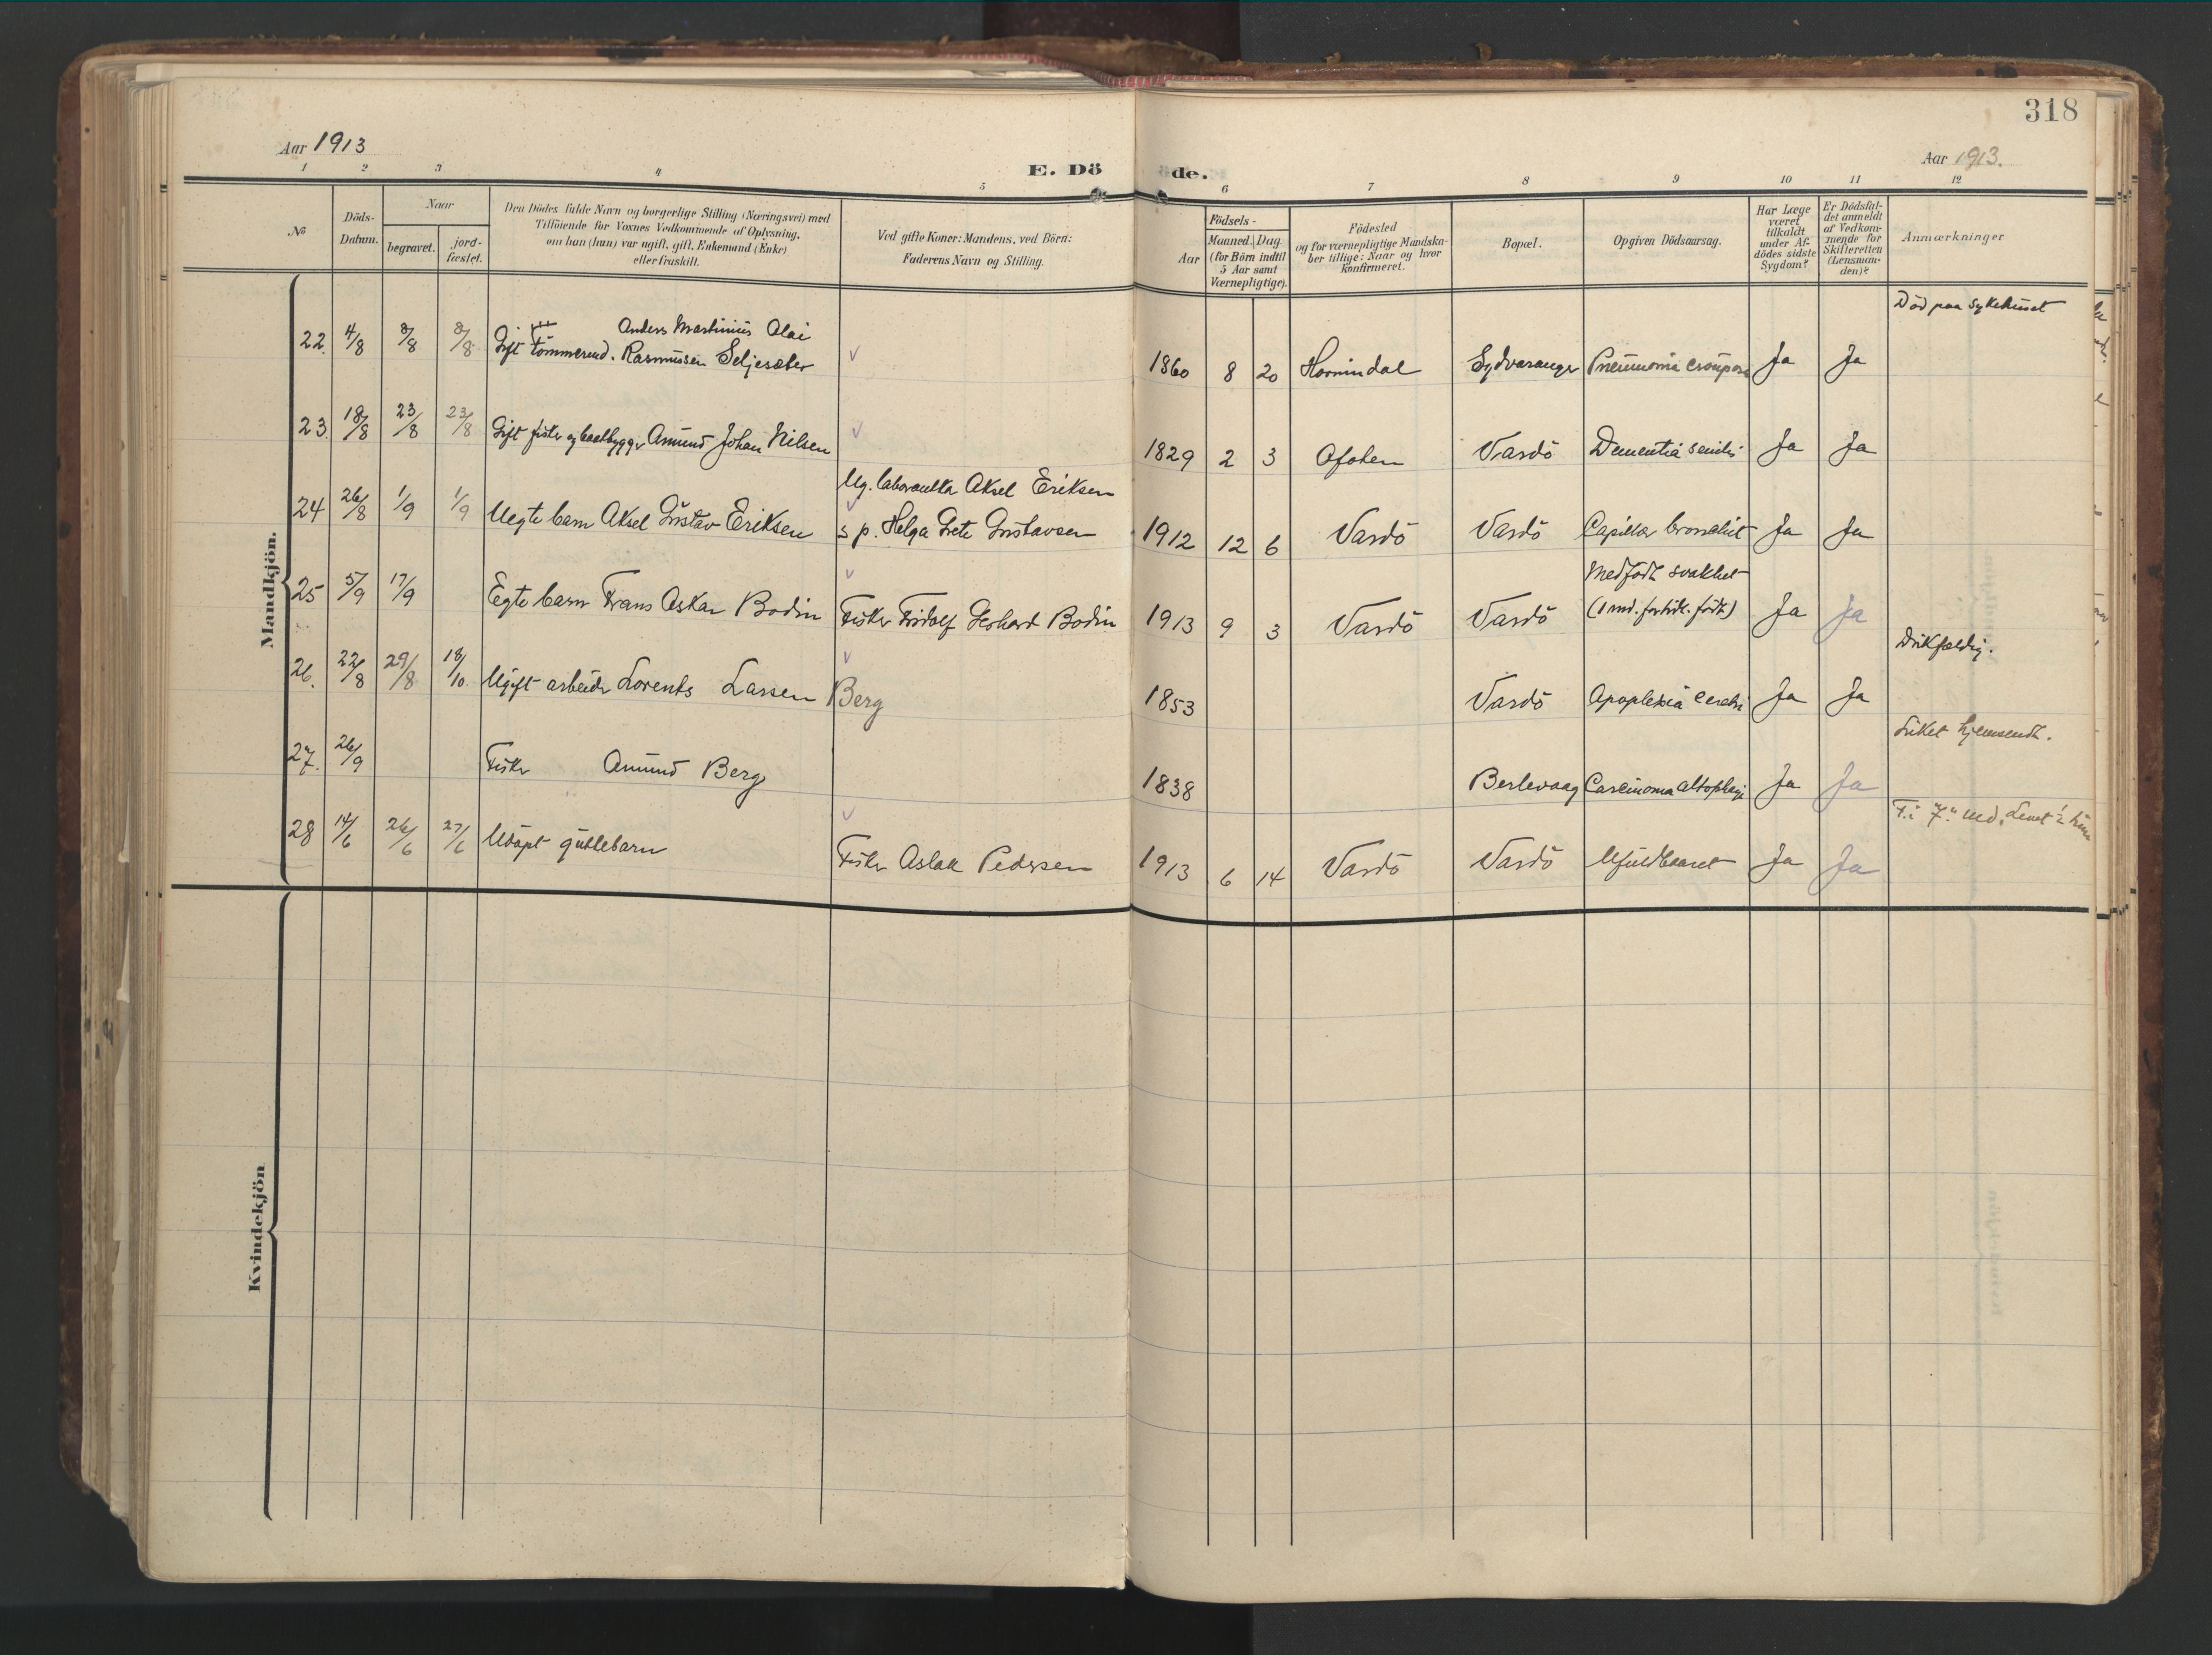 318
Aar 1913
Aar 1913.
E. Dö de.
1 2 3 4 5 6 7 8 9 10 11 12
No
Döds-Datum.
Naar
begravet.
jord-fæstet.
Den Dödes fulde Navn og borgerlige Stilling (Næringsvei) med
Tilföiende for Voxnes Vedkommende af Oplysning,
om han (hun) var ugift, gift, Enkemand (Enke)
eller fraskilt.
Ved gifte Koner: Mandens, ved Börn:
Faderens Navn og Stilling.
Födsels-
Aar
Maaned. Dag
(for Börn indtil
5 Aar samt
Værnepligtige).
Födested
og for værnepligtige Mandska-
ber tillige: Naar og hvor
konfirmeret.
Bopæl.
Opgiven Dödsaarsag.
Har Læge
været
tilkaldt
under Af-
dödes sidste
Sygdom?
Er Dödsfal-
det anmeldt
af Vedkom-
mende for
Skifteretten
(Lensman-
den)?
Anmærkninger
Mandkjön.
Död paa sykehuset
Anders Martinius Olai
22. 4/8 8/8 8/8 Gift Tømmermd. Rasmussen Seljesæter 1860 8 20 Hornindal Sydvaranger Pneumonia crouposa Ja Ja
23 18/8 23/8 23/8 Gift fisker og baatbygger Amund Johan Nilsen 1829 2 3 Ofoten Vardö Dementia senilis Ja Ja
Ug. Aksel Eriksen
24 26/8 1/9 1/9 Uegte barn Aksel Gustav Eriksen s p. Helga Grete Gustavsen 1912 12 6 Vardö Vardö Capillar bronchit Ja Ja
Medfödt svakhet
25 5/9 17/9 Egte barn Frans Oskar Bodin Fisker Fridolf Gerhard Bodin 1913 9 3 Vardö Vardö (1 md. fortidl. födt) Ja Ja
Drikfældig.
26. 22/8 29/8 18/10 Ugift arbeider Lorents Larsen Berg 1853 Vardö Apoplexia cerebri Ja Ja
Liket hjemsendt.
27. 26/9 Fisker Amund Berg 1838 Berlevaag Carcinoma Ja Ja
28 14/6 26/6 27/6 Udöpt guttebarn Fisker Aslak Pedersen 1913 6 14 Vardö Vardö Ufuldbaaret Ja Ja
F. i 7. md. Levet
Kvindekjön